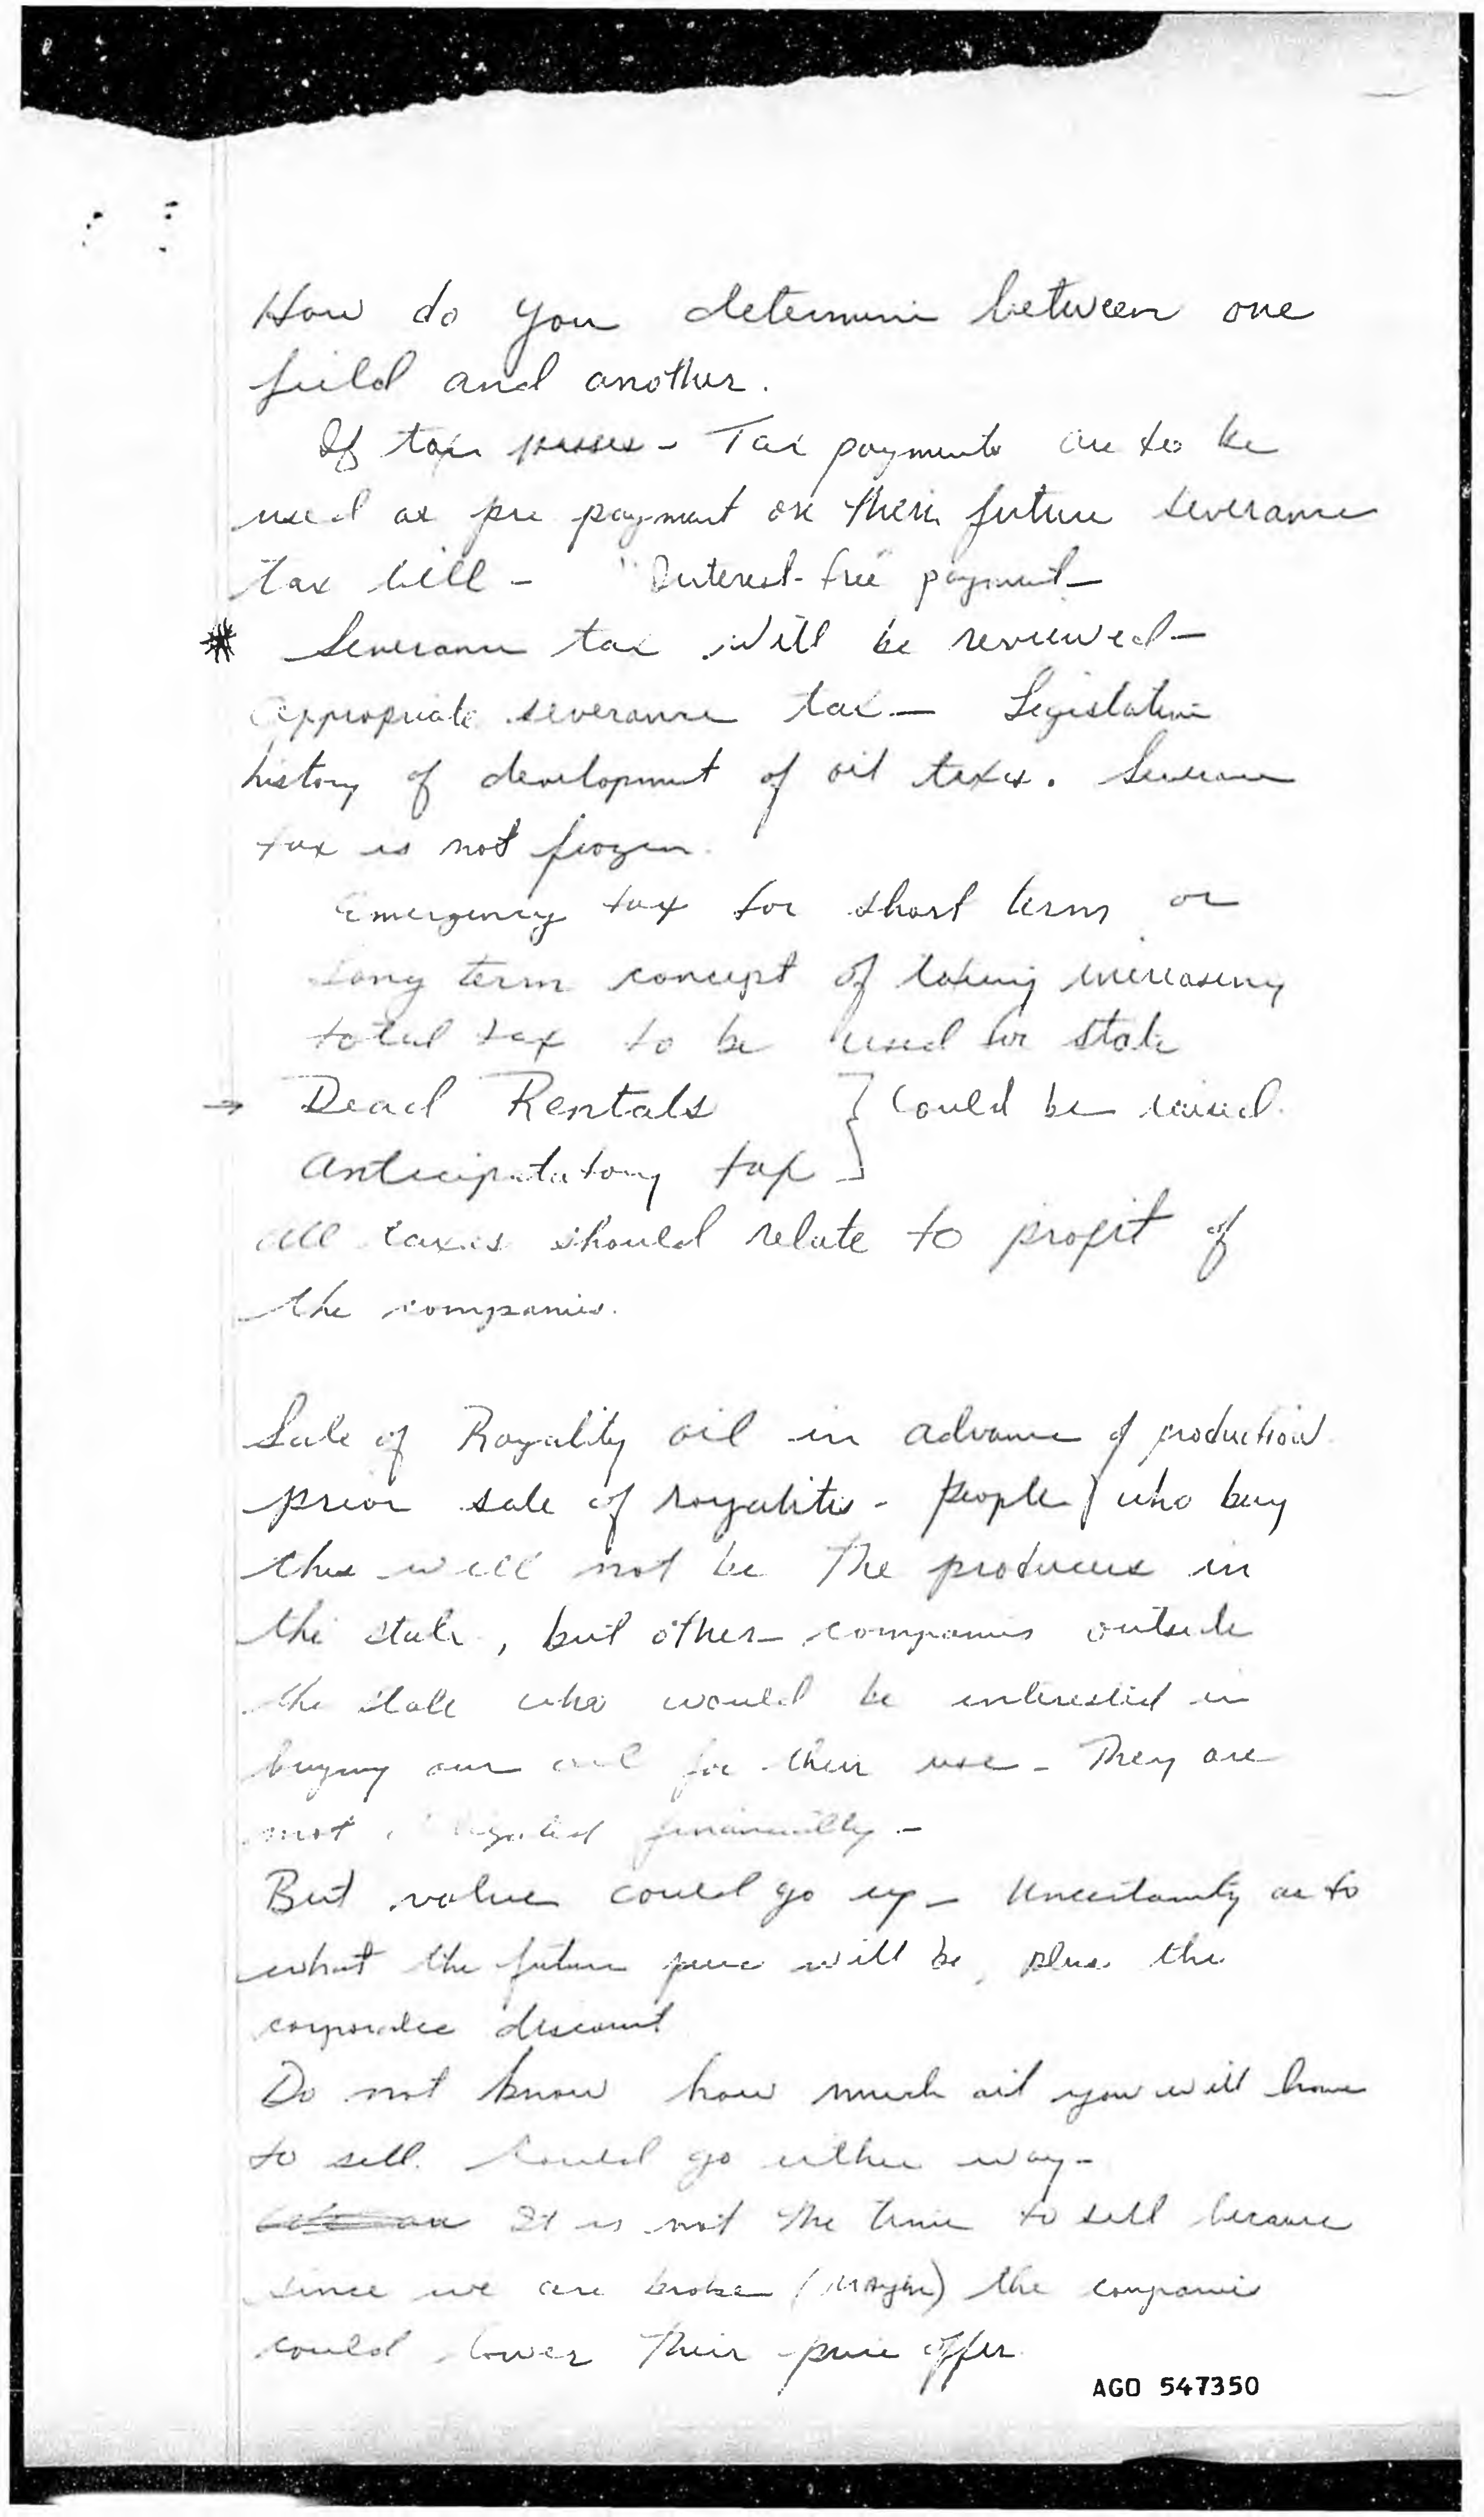 How do you determine between one
field and another.
If tax passes - Tax payments are to be
used as pre payment on their future severance
tax bill - "Interest-free" payment -
* Severance tax will be reviewed -
Appropriate severance tax - Legislative
history of development of oil taxes. Severance
tax is not frozen.
Emergency tax for short term or
Long term concept of taking increasing
total tax to be used for state
→ Dead Rentals } Could be raised.
Anticipatatory tax
All taxes should relate to profit of
the companies.
Sale of Royality oil in advance of production
prior sale of royalities - People who buy
this will not be the producers in
the state, but other companies outside
the state who would be interested in
buying our oil for their use - They are
not financially -
But value could go up - Uncertainty as to
what the future price will be, plus the
corporate discount
Do not know how much oil you will have
to sell. Could go either way -
It is not the time to sell because
since we are broke (maybe) the companies
could lower their price offer.
AGO 547350